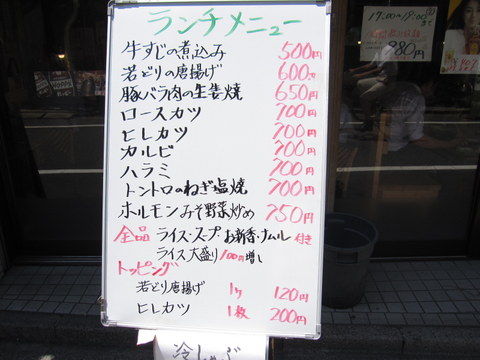 ランチメニュー
牛すじの煮込み 500円
若どりの唐揚げ 600円
豚バラ肉の生姜焼 650円
ロースカツ 700円
ヒレカツ 700円
カルビ 700円
ハラミ 700円
トントロのねぎ塩焼 700円
ホルモンみそ野菜炒め 750円
全品 ライス・スープ お新香・ナムル 付き
ライス大盛り 100円増し
トッピング
若どり唐揚げ 1ケ 120円
ヒレカツ 1枚 200円
17:00～19:00
980円